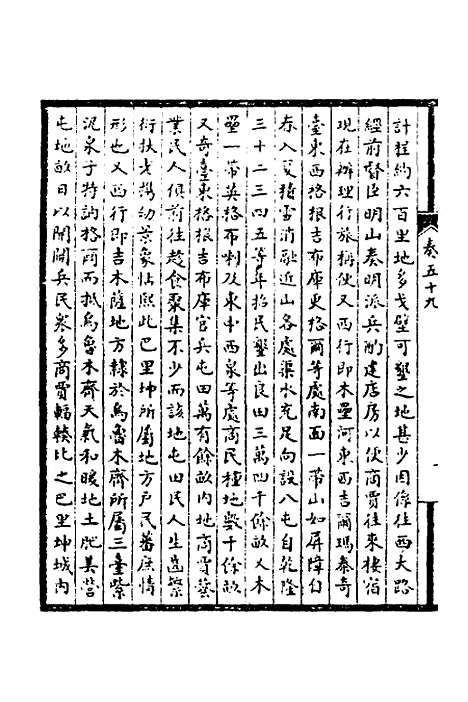 卷五十九
計程約六百里地多戈壁可墾之地甚少因係往西大路
經前督臣明山奏明派兵酌建店房以便商賈往來棲宿
現在辦理行旅稱便又西行即木壘河東西吉爾瑪泰奇
臺東西格根吉布庫更格爾等處南面一帶山如屏障自
春入夏積雪消融近山各處渠水充足向設八屯自乾隆
三十二三四五等年招民墾出良田三萬四千餘畝又木
壘一帶英格布喇以東中西泉等處商民種地數千餘畝
又奇臺東格根吉布庫官兵屯田萬有餘畝內地商賈藝
業民人俱前往趁食聚集不少而該地屯田民人生齒繁
衍扶老攜幼景象恬熙此巴里坤所屬地方戶民蕃庶情
形也又西行即吉木薩地方隸於烏魯木齊所屬三臺紫
泥泉子特訥格爾而抵烏魯木齊天氣和暖地土肥美營
屯地畝日以開闢兵民眾多商賈輻輳比之巴里坤城內